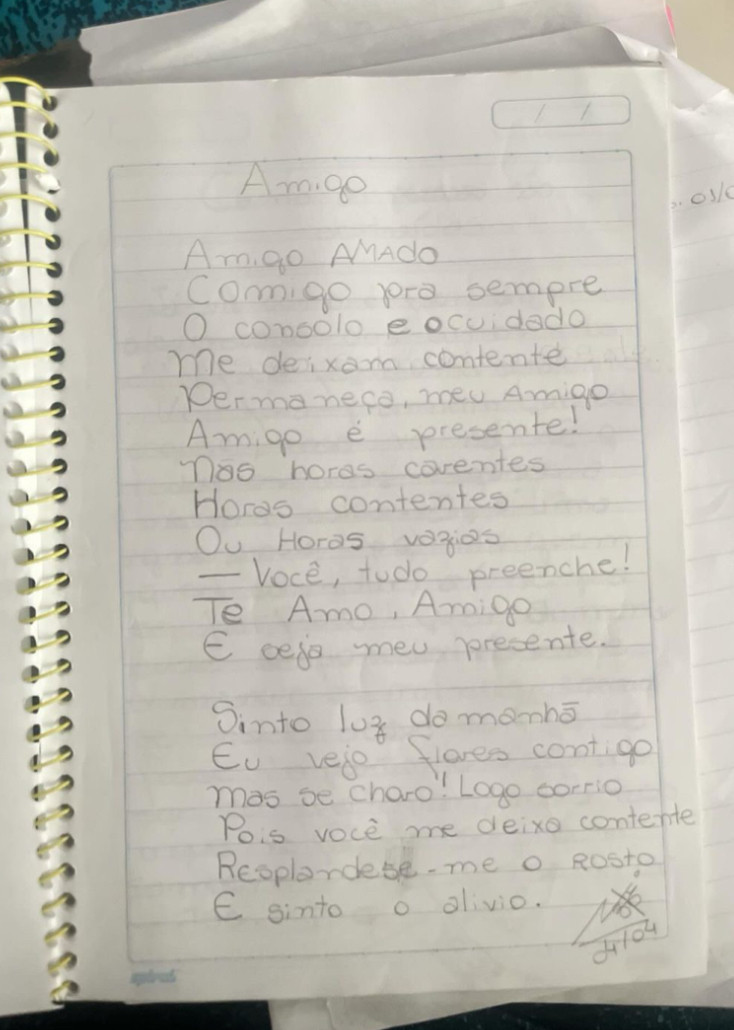 Amigo
Amigo AMADO
Comigo pra sempre
O consolo e o cuidado
Me deixam contente
Permaneça, meu Amigo
Amigo é presente!
Nas horas carentes
Horas contentes
Ou Horas vazias
— Você, tudo preenche!
Te Amo, Amigo
E seja meu presente.
Sinto luz da manhã
Eu vejo flores contigo
Mas se choro! Logo sorrio
Pois você me deixa contente
Resplandese-me o Rosto
E sinto o alivio.
24/04